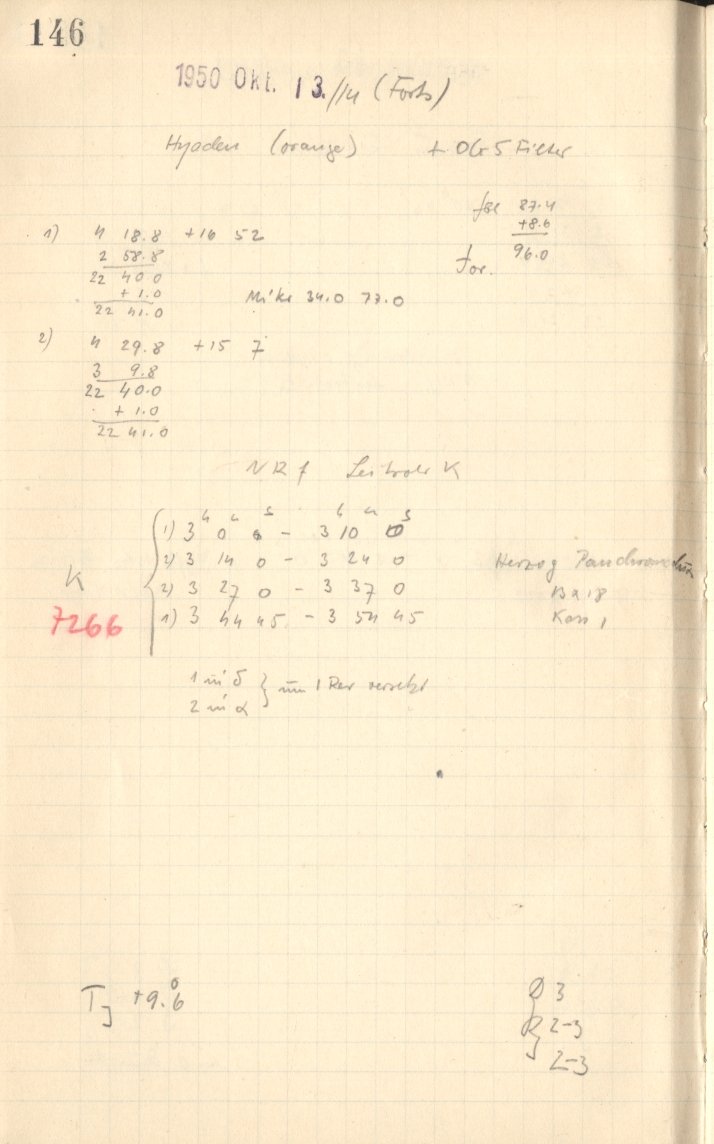 146
1950 Okt. 13./14 (Forts)
Hyaden (orange) + OG5 Filter
1) 4 18.8 +16 52
2 58.8
22 40.0
+ 1.0
22 41.0
f 87.4
+8.6
96.0
for.
Mikr 34.0 77.0
2) 4 29.8 +15 7
3 9.8
22 40.0
+ 1.0
22 41.0
K
7266
1) 3h 0m 0s – 3h 10m 0s
2) 3 14 0 – 3 24 0
2) 3 27 0 – 3 37 0
1) 3 44 45 – 3 54 45
Herzog
Kass 1
1 in δ
2 in α
um 1 Rev versetzt
TJ +9.°6
3
2–3
2–3